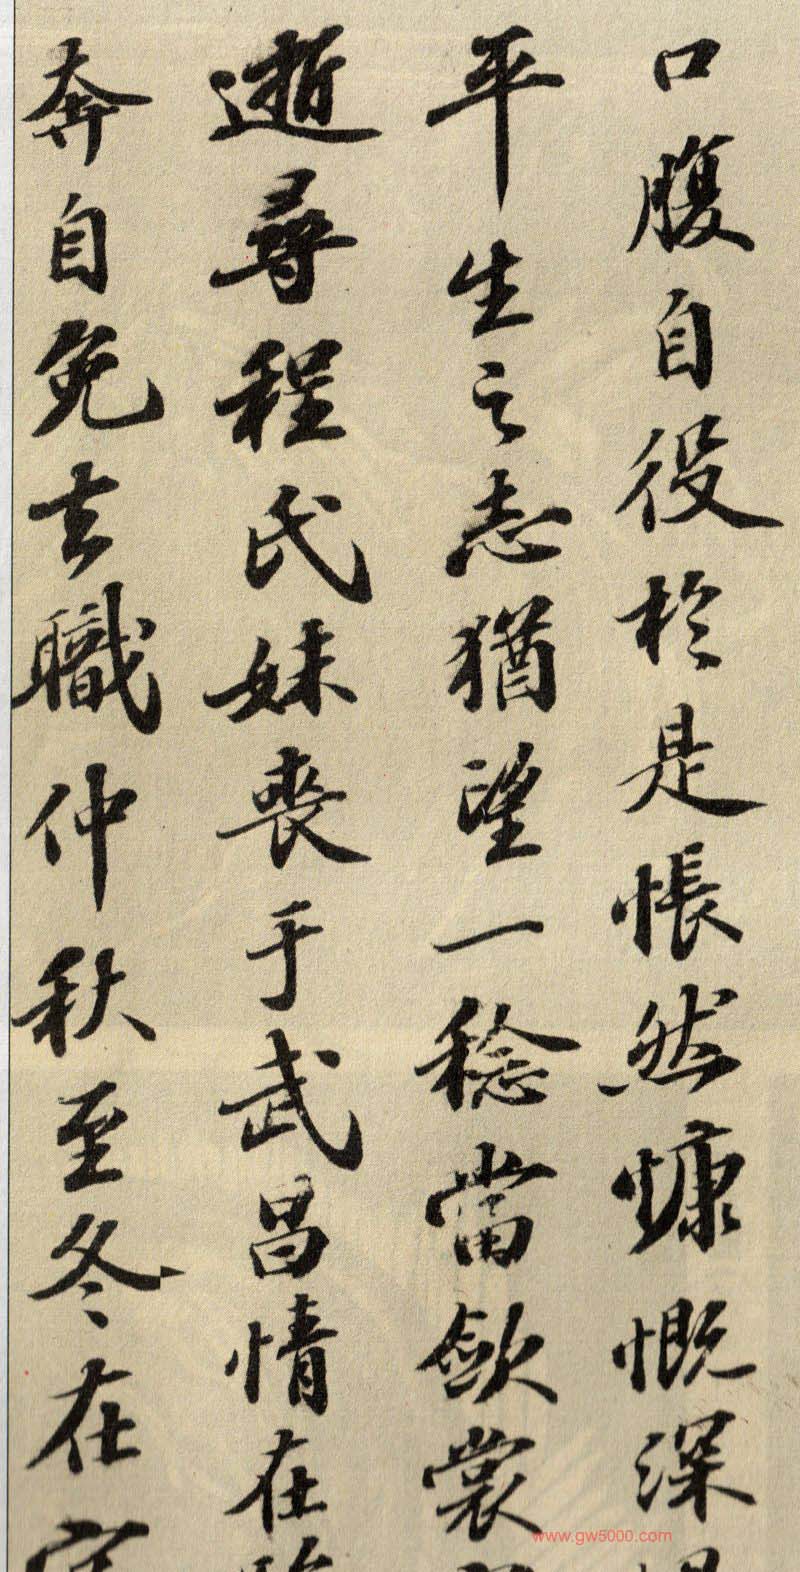 口腹自役於是悵然慷慨深
平生之志猶望一稔當歛裳
逝尋程氏妹喪于武昌情在
奔自免去職仲秋至冬在
www.gw5000.com